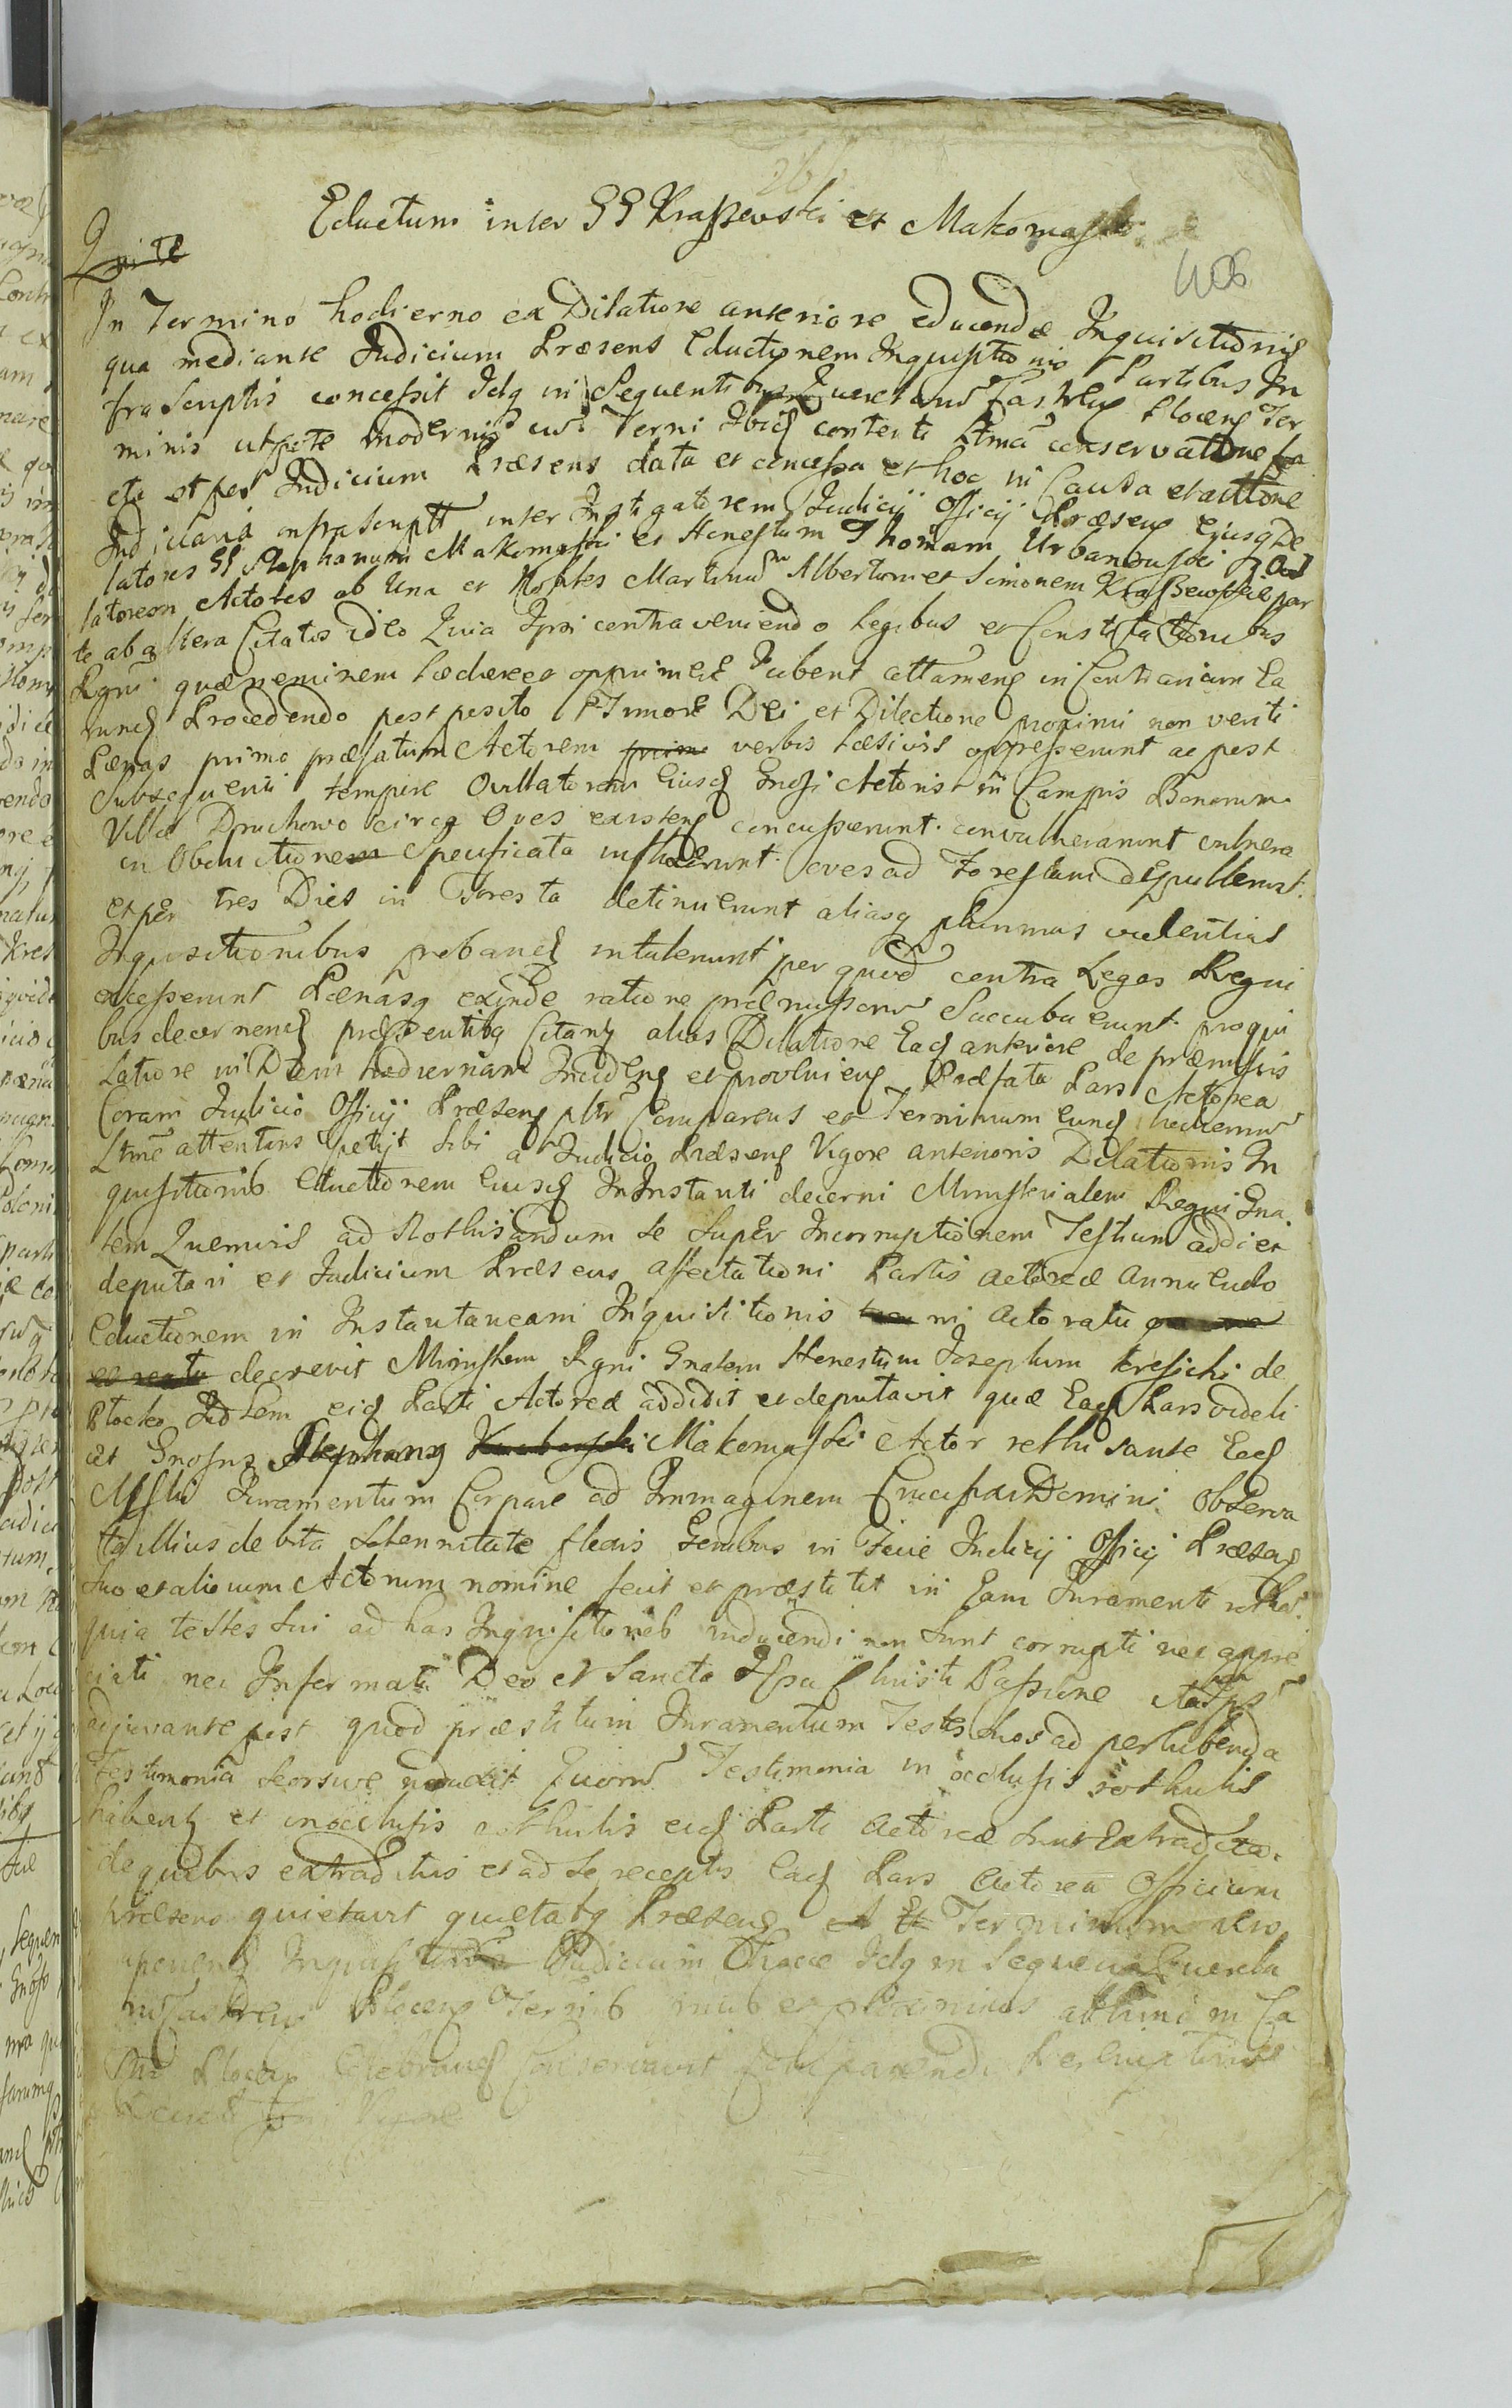 Eductum inter GG Kraszewski et Makomaski
406
In Termino hodierno ex Dilatione anteriore educendæ Inquisitionis
qua mediante Judicium Præsens Eductionem Inquisitionis Partibus In
frascriptis concessit Idq in Sequentibus Querelarum Castrens Plocens Ter
minis utpote modernis cum Termi Ibid contenti conservatione fa
cta est per Judicium Præsens data et concessa et hoc in Causa et actione
Judiciaria infrascripta inter Instigatorem Judicij Officij Præsens Ejusq De
latores GG Stephanum Makomaski et Honestum Thomam Urbanowski
latorem Actores ab Una et Nobiles Martinum Albertum et Simonem Kraszewskie par
te ab altera Citatos ideo Quia Ipsi contraveniendo Legibus et Constitutionibus
Regni quæ neminem lædere et opprimere Jubent attamen in Contrarium Ea
rund Procedendo postposito Timore Dei et Dilectione proximi non veriti
Pænas primo præfatum Actorem verbis læsivis oppresserunt ac post
Subsequenti tempore Ovillatorem Ejusd Gnosi Actoris in Campis Bonorum
Villæ Pruchowo circa Oves existen concusserunt convulnerarunt vulnera
in Obductione Specificata intulerunt oves ad Forestam depullerunt
et per tres Dies in Foresta detinuerunt aliasq plurimas violentias
Inquisitionibus proband intulerunt per quod contra Leges Regni
excesserunt Pænasq exinde ratione præmissorum Succubuerunt pro qui
bus decernend præsentibq Citant alias Dilatione Ead anteriore de præmissis
Latione in Diem hodiernam Inciden et provenien Præfata Pars Actorea
Coram Judicio Officij Præsens pltr Comparens et Terminum eund hodiernum
Ltme attentans petijt Sibi a Judicio Præsens Vigore anterioris Dilationis In
quisitionis Eductionem Ejusd In Instanti decerni Ministerialem Regni Gna
lem Quemvis ad Rothisandum se Super Incorruptionem Testium addi et
deputari et Judicium Præsens affectationi Partis Actoreæ annuendo
Eductionem in Instantaneam Inquisitionis in Actoratu
decrevit Ministlem Rgni Gnalem Honestum Josephum Kresicki de
Plocko Idem eid Parti Actoreæ addidit et deputavit quæ Ead Pars videli
cet Gnosus Stephanus Makomaski Actor rothisante Eod
Mstli Juramentum Corpore ad Immaginem Crucifixi Domini Observa
ta illius debita Solennitate flexis Genibus in Facie Judicij Officij Præsens
Suo et aliorum Actorum nomine fecit et præstitit in Eam Juramenti
quia testes Sui ad has Inquisitiones inducendi non Sunt corrupti nec appre
ciati nec Informati Deo et Sancta Ipsa Christi Passione
adjuvante post quod præstitum Juramentum Testes Suos ad perhibenda
Testimonia Seorsive induxit Quorum Testimonia in occlusis rothulis
habent et in occlusis rothulis eid Parti Actoreæ Sunt Extradita
de quibus extraditis et ad Se receptis Ead Pars Actorea Officium
Præsens quietavit quietatq Præsens Terminum vero
aperiend Inquisitionum Judicium Idq in Sequen Querelarum
Castrens Plocens Terminis et proximius in Ca
stro Plocen Celebrand Conservavit